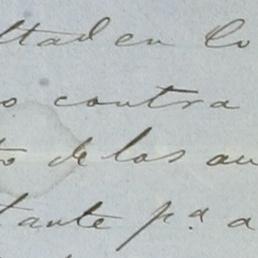 ltad en lo
o contra
to de los au
tante p.ª a